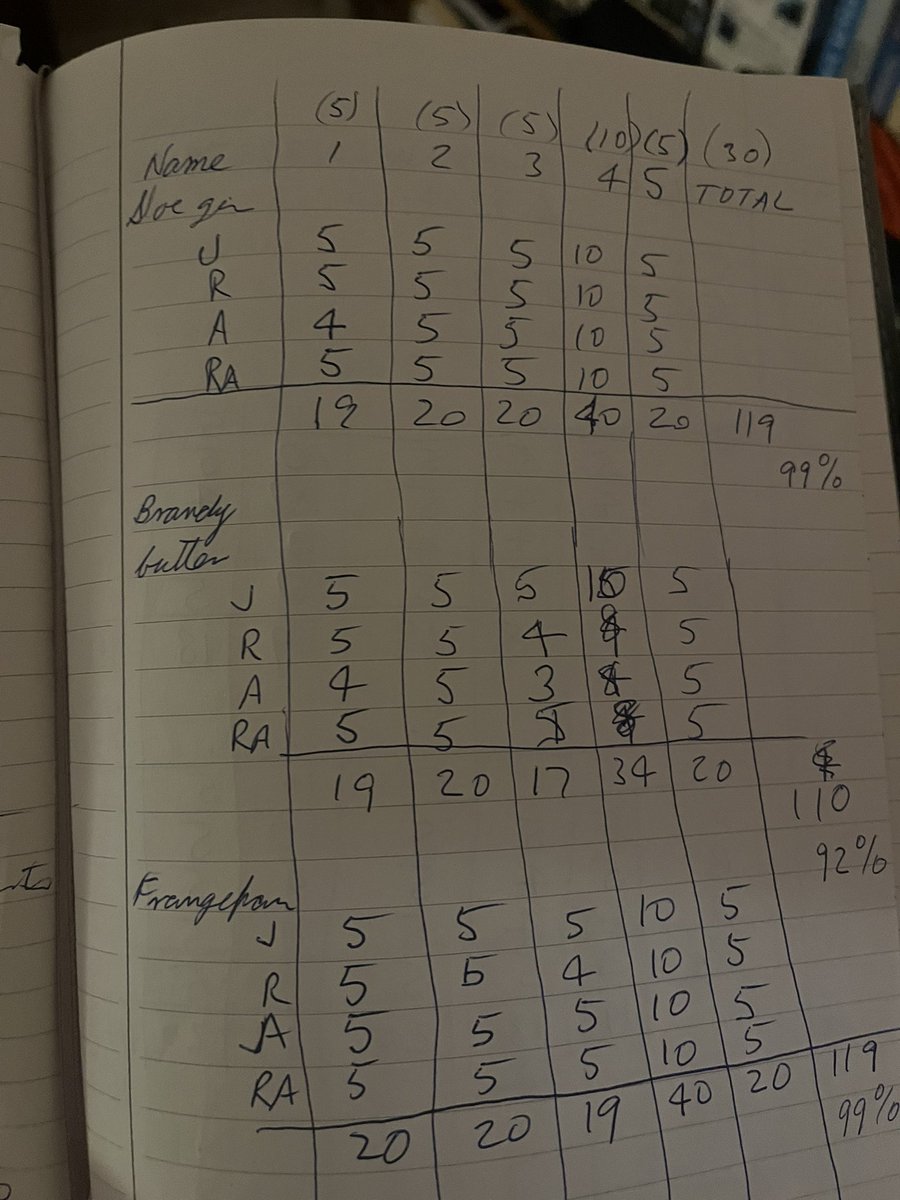 (5) (5) (5) (10) (5) (30)
Name 1 2 3 4 5 TOTAL
Sloe gin
J 5 5 5 10 5
R 5 5 5 10 5
A 4 5 5 10 5
RA 5 5 5 10 5
19 20 20 40 20 119
99%
Brandy
butter
J 5 5 5 10 5
R 5 5 4 5
A 4 5 3 5
RA 5 5 5 5
19 20 17 34 20
110
92%
Frangepan
J 5 5 5 10 5
R 5 5 4 10 5
A 5 5 5 10 5
RA 5 5 5 10 5
20 20 19 40 20 119
99%